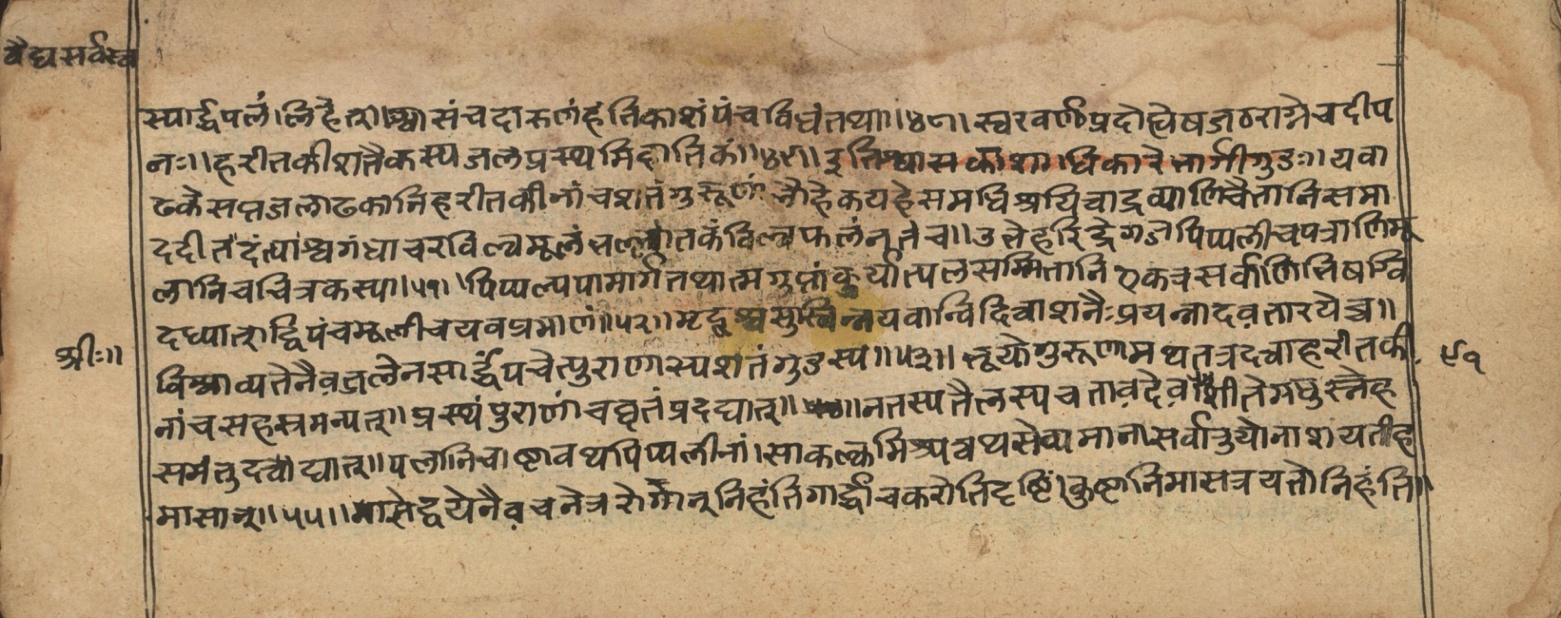 वैद्यसर्वस्व
स्यार्द्धपलं।लिहेत्।श्वासंचदारुणंहंतिकाशंपंचविधंतथा॥४८।स्वरवर्णप्रदोह्येषजठराग्नेचदीप
नः॥हरीतकीशतैकस्यजलप्रस्थमिहातिकं॥४९॥इतिश्वासकाशाधिकारेभार्गीगुडः॥यवा
ढकेसप्तजलाढकानिहरीतकीनांचशतंगुरूणांलौहेकयहेसमधिश्रयित्वाद्रव्याणिचैतानिसमा
ददीतदंत्याश्वगंधाचरविल्वमूलंभल्लातकंविल्वफलंनृतंच॥उभेहरिद्रेगजपिप्पलीचपत्राणिमू
लानिचचित्रकस्या।५१।पिप्पल्यपामार्गतथात्मगुप्तांकुर्यात्पलसम्मितानिएकत्रसर्वाणिभिषग्वि
दध्यात्द्विपंचमूलीचयवप्रमाणं॥५२॥मृद्वश्चसुस्विन्नयवान्विदित्वाशनैःप्रयत्नादवतारयेच्च॥
विश्राव्यतेनैवजलेनसार्द्धंपचेत्पुराणस्यशतंगुडस्य॥५३॥भूयोगुरूणामथतत्रदत्वाहरीतकी
नांचसहस्रमन्यत्॥प्रस्थंपुराणंचघृतंप्रदद्यात्॥नतस्यतैलस्यचतावदेवशीतेमधुस्नेह
समंतुदत्वाद्यात्॥पलानिचाष्टावथपिप्पलीनां।साकल्कमिश्र्यत्वथसेव्यमानासर्वातुयोनाशयतीह
मासान्॥५५॥मासेद्वयेनैवचनेत्ररोगान्निहंतिगार्द्ध्रींचकरोतिदृष्टिं।कुष्टानिमासत्रयतोनिहंति॥
श्रीः॥
९१